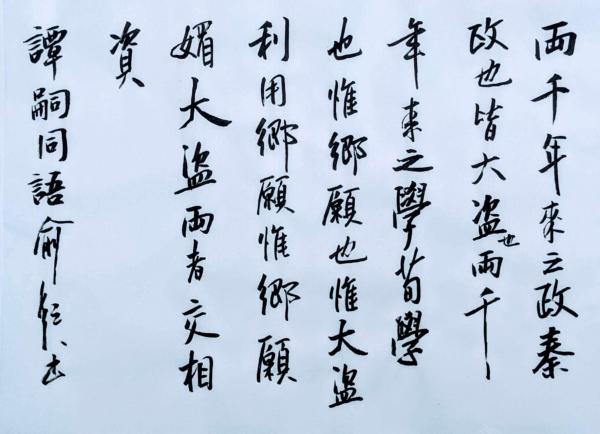 兩千年來之政秦
政也皆大盜也兩千
年來之學荀學
也惟鄉愿也惟大盜
利用鄉愿惟鄉愿
媚大盜兩者交相
資
譚嗣同語俞